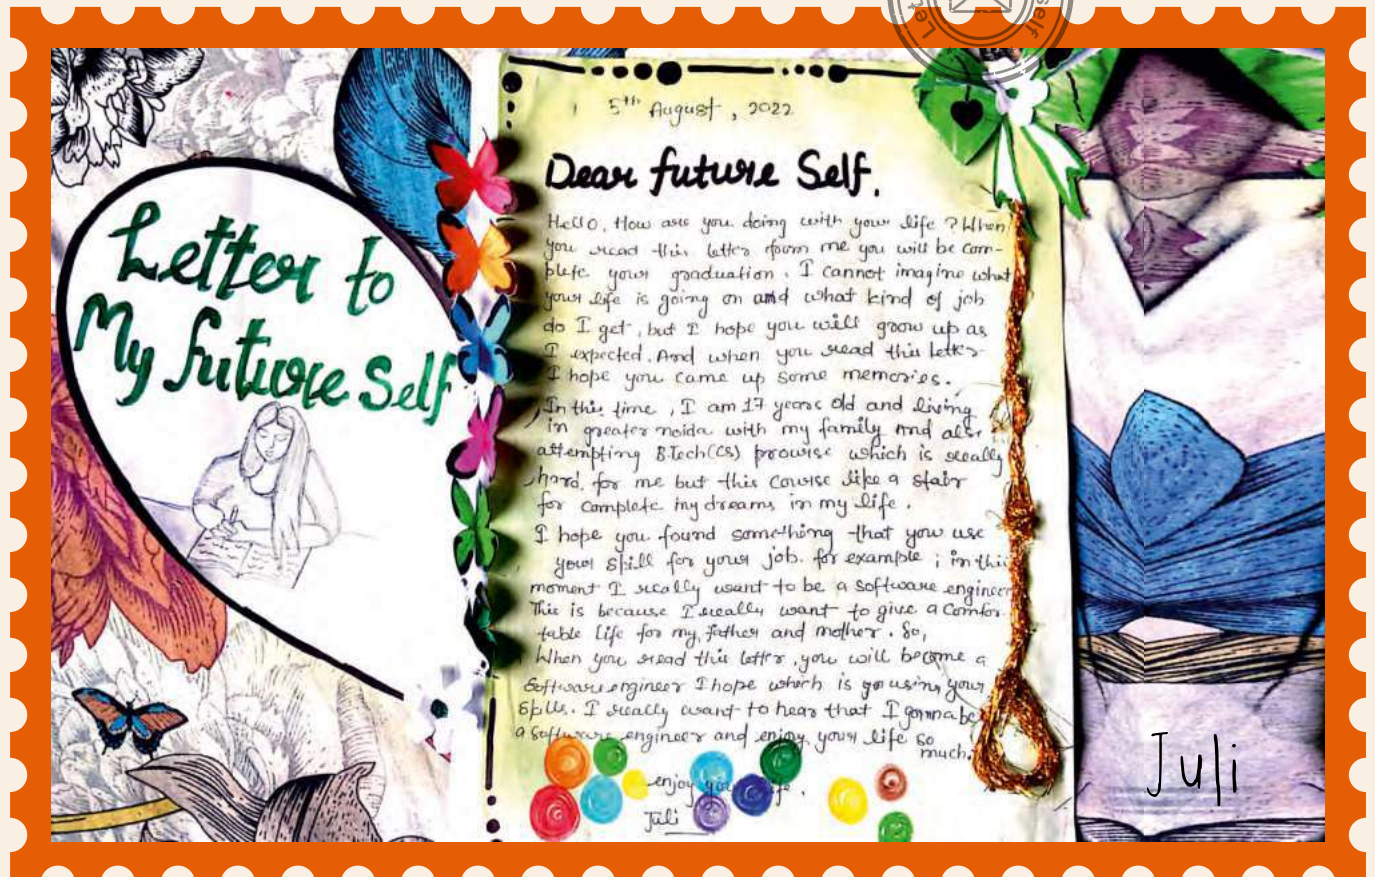 Let
self
Letter to
My future Self
5th August, 2022
Dear future Self,
Hello, How are you doing with your life ? When
you read this letter form me you will be com-
plete your graduation. I cannot imagine what
your life is going on and what kind of job
do I get, but I hope you will grow up as
I expected. And when you read this letter
I hope you came up some memories.
In this time, I am 17 years old and living
in greater noida with my family and also
attempting B.Tech(CS) prowise which is really
hard, for me but this course like a stair
for complete my dreams in my life.
I hope you found something that you use
your spill for your job. for example ; in this
moment I really want to be a software engineer
This is because I really want to give a comfor
table life for my father and mother. So,
When you read this letter, you will become a
Software engineer I hope which is using your
spills. I really want to hear that I gonna be
a Software engineer and enjoy your life so
much.
enjoy your life.
Juli
Juli